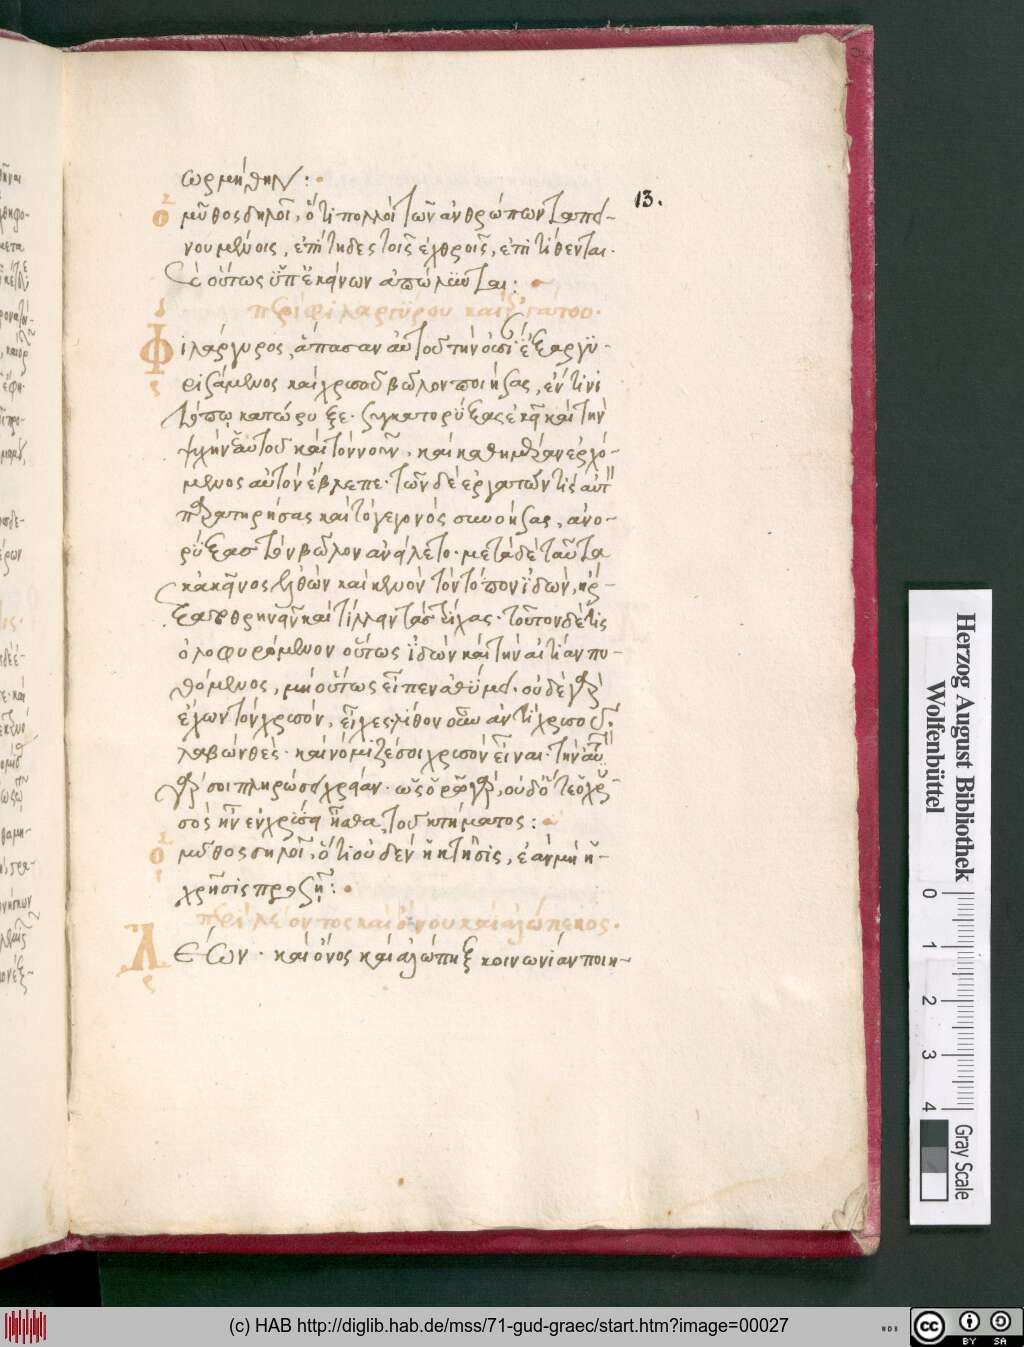 13.
ὡρμήθην :
ὁ
μῦθος δηλοῖ, ὅτι πολλοὶ τῶν ἀνθρώπων ταπει-
νουμένοις, ἐπίτηδες τοῖς ἐχθροῖς, ἐπιτίθενται.
καὶ οὕτως ὑπ' ἐκείνων ἀπώλλυνται :
περὶ φιλαργύρου καὶ
Φιλάργυρος, ἅπασαν αὐτοῦ τὴν οὐσίαν ἐξαργυ-
ρισάμενος καὶ χρυσοῦ βῶλον ποιήσας, ἔν τινι
τόπῳ κατώρυξε. συγκατορύξας ἐκεῖ καὶ τὴν
ψυχὴν ἑαυτοῦ καὶ τὸν νοῦν. καὶ καθημέραν ἐρχό-
μενος αὐτὸν ἔβλεπε. τῶν δὲ ἐργατῶν τὶς αὐτὸν
παρατηρήσας καὶ τὸ γεγονὸς συνοήσας, ἀνο-
ρύξας τὸν βῶλον ἀνείλετο. μετὰ δὲ ταῦτα
κἀκεῖνος ἐλθὼν καὶ κενὸν τὸν τόπον ἰδὼν, ἤρ-
ξατο θρηνεῖν καὶ τίλλειν τὰς τρίχας. τοῦτον δέ τις
ὀλοφυρόμενον οὕτως ἰδὼν καὶ τὴν αἰτίαν πυ-
θόμενος, μὴ οὕτως εἶπεν ἀθύμει. οὐδὲ γὰρ
ἔχων τὸν χρυσόν, εἶχες. λίθον οὖν ἀντὶ χρυσοῦ
λαβὼν θές. καὶ νόμιζέ σοι χρυσὸν εἶναι. τὴν αὐτὴν
γάρ σοι πληρώσει χρείαν. ὡς ὁρῶ γὰρ, οὐδ' ὅτε ὁ χρυ-
σὸς ἦν ἐν χρήσει ἦσθα τοῦ κτήματος :
ὁ
μῦθος δηλοῖ, ὅτι οὐδὲν ἡ κτῆσις, ἐὰν μὴ ἡ
χρῆσις προσῇ :
περὶ λέοντος καὶ ὄνου καὶ ἀλώπεκος.
Λέων. καὶ ὄνος καὶ ἀλώπηξ κοινωνίαν ποιη-
Herzog August Bibliothek
Wolfenbüttel
0
1
2
3
4
Gray Scale
(c) HAB http://diglib.hab.de/mss/71-gud-graec/start.htm?image=00027
WDB
cc BY SA